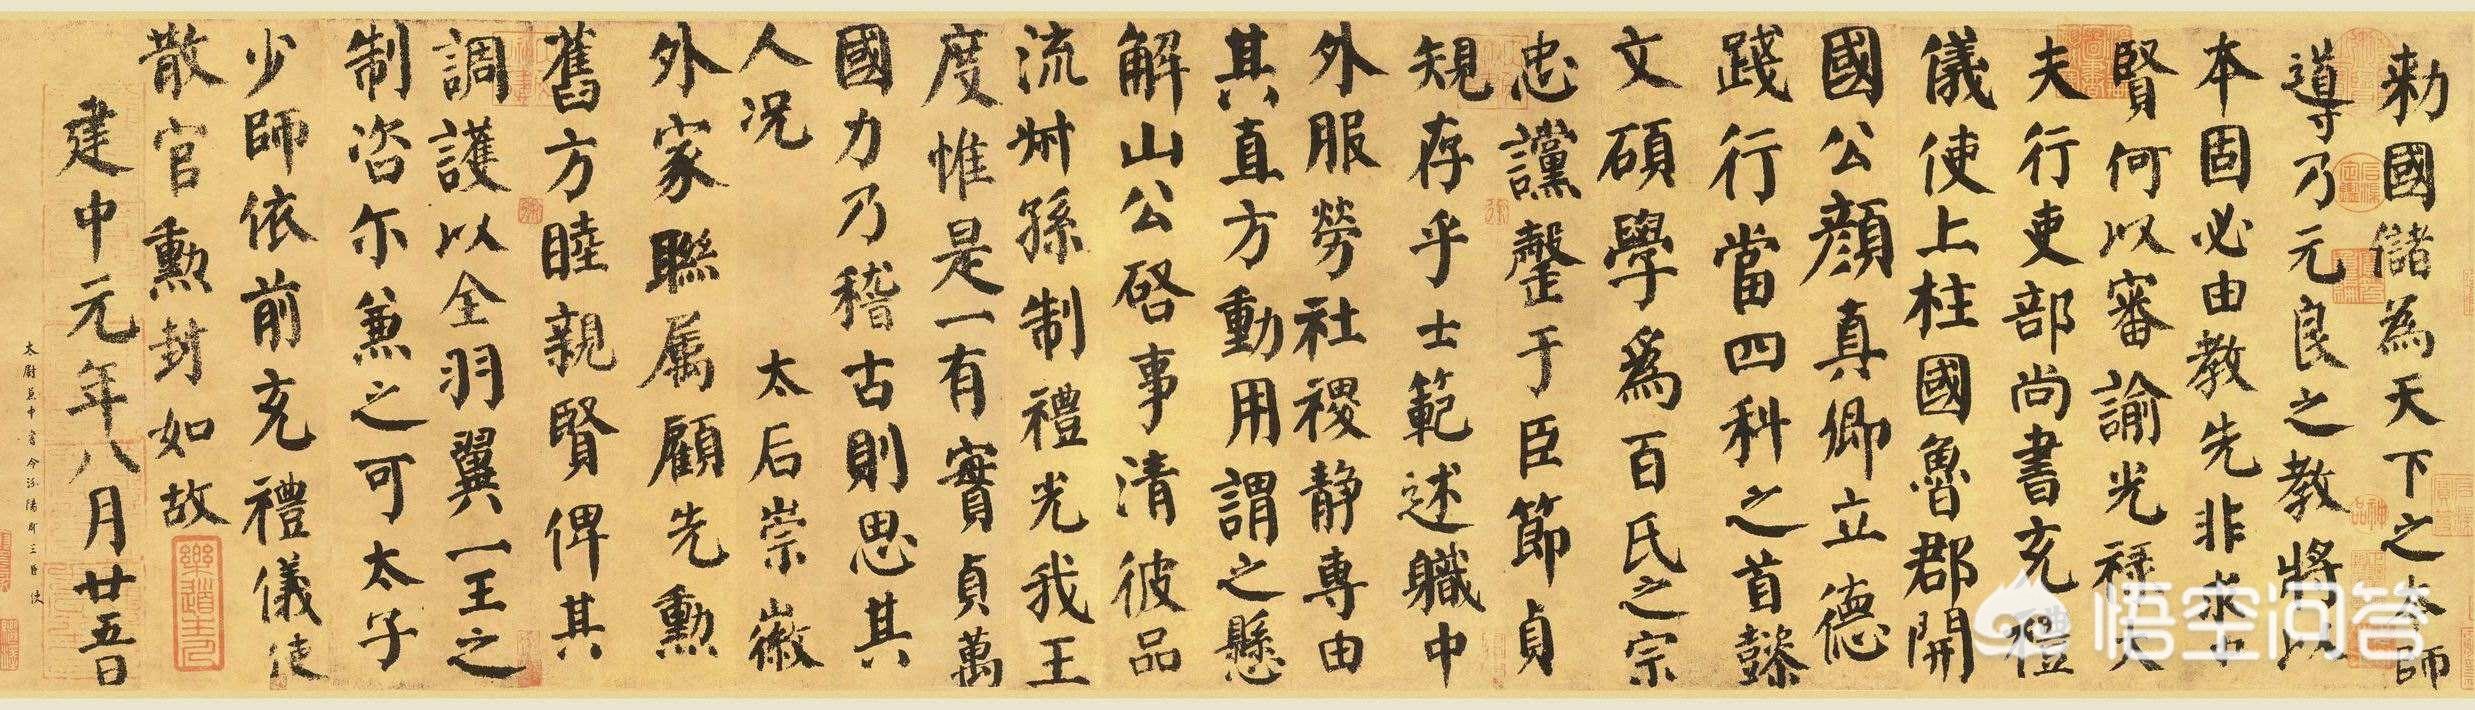 勑國儲為天下之本師
導乃元良之教將以
本固必由教先非求中
賢何以審諭光禄大
夫行吏部尚書充禮
儀使上柱國魯郡開
國公顏真卿立德
踐行當四科之首懿
文碩學為百氏之宗
忠讜罄于臣節貞
規存乎士範述職中
外服勞社稷静專由
其直方動用謂之懸
解山公啓事清彼品
流叔孫制禮光我王
度惟是一有實貞萬
國力乃稽古則思其
人况 太后崇徽
外家聯属顧先勳
舊方睦親賢俾其
調護以全羽翼一王之
制咨尔兼之可太子
少師依前充禮儀使
散官勳封如故
建中元年八月廿五日
太尉兼中書令汾陽郡王臣使
樂道主人
悟空问答